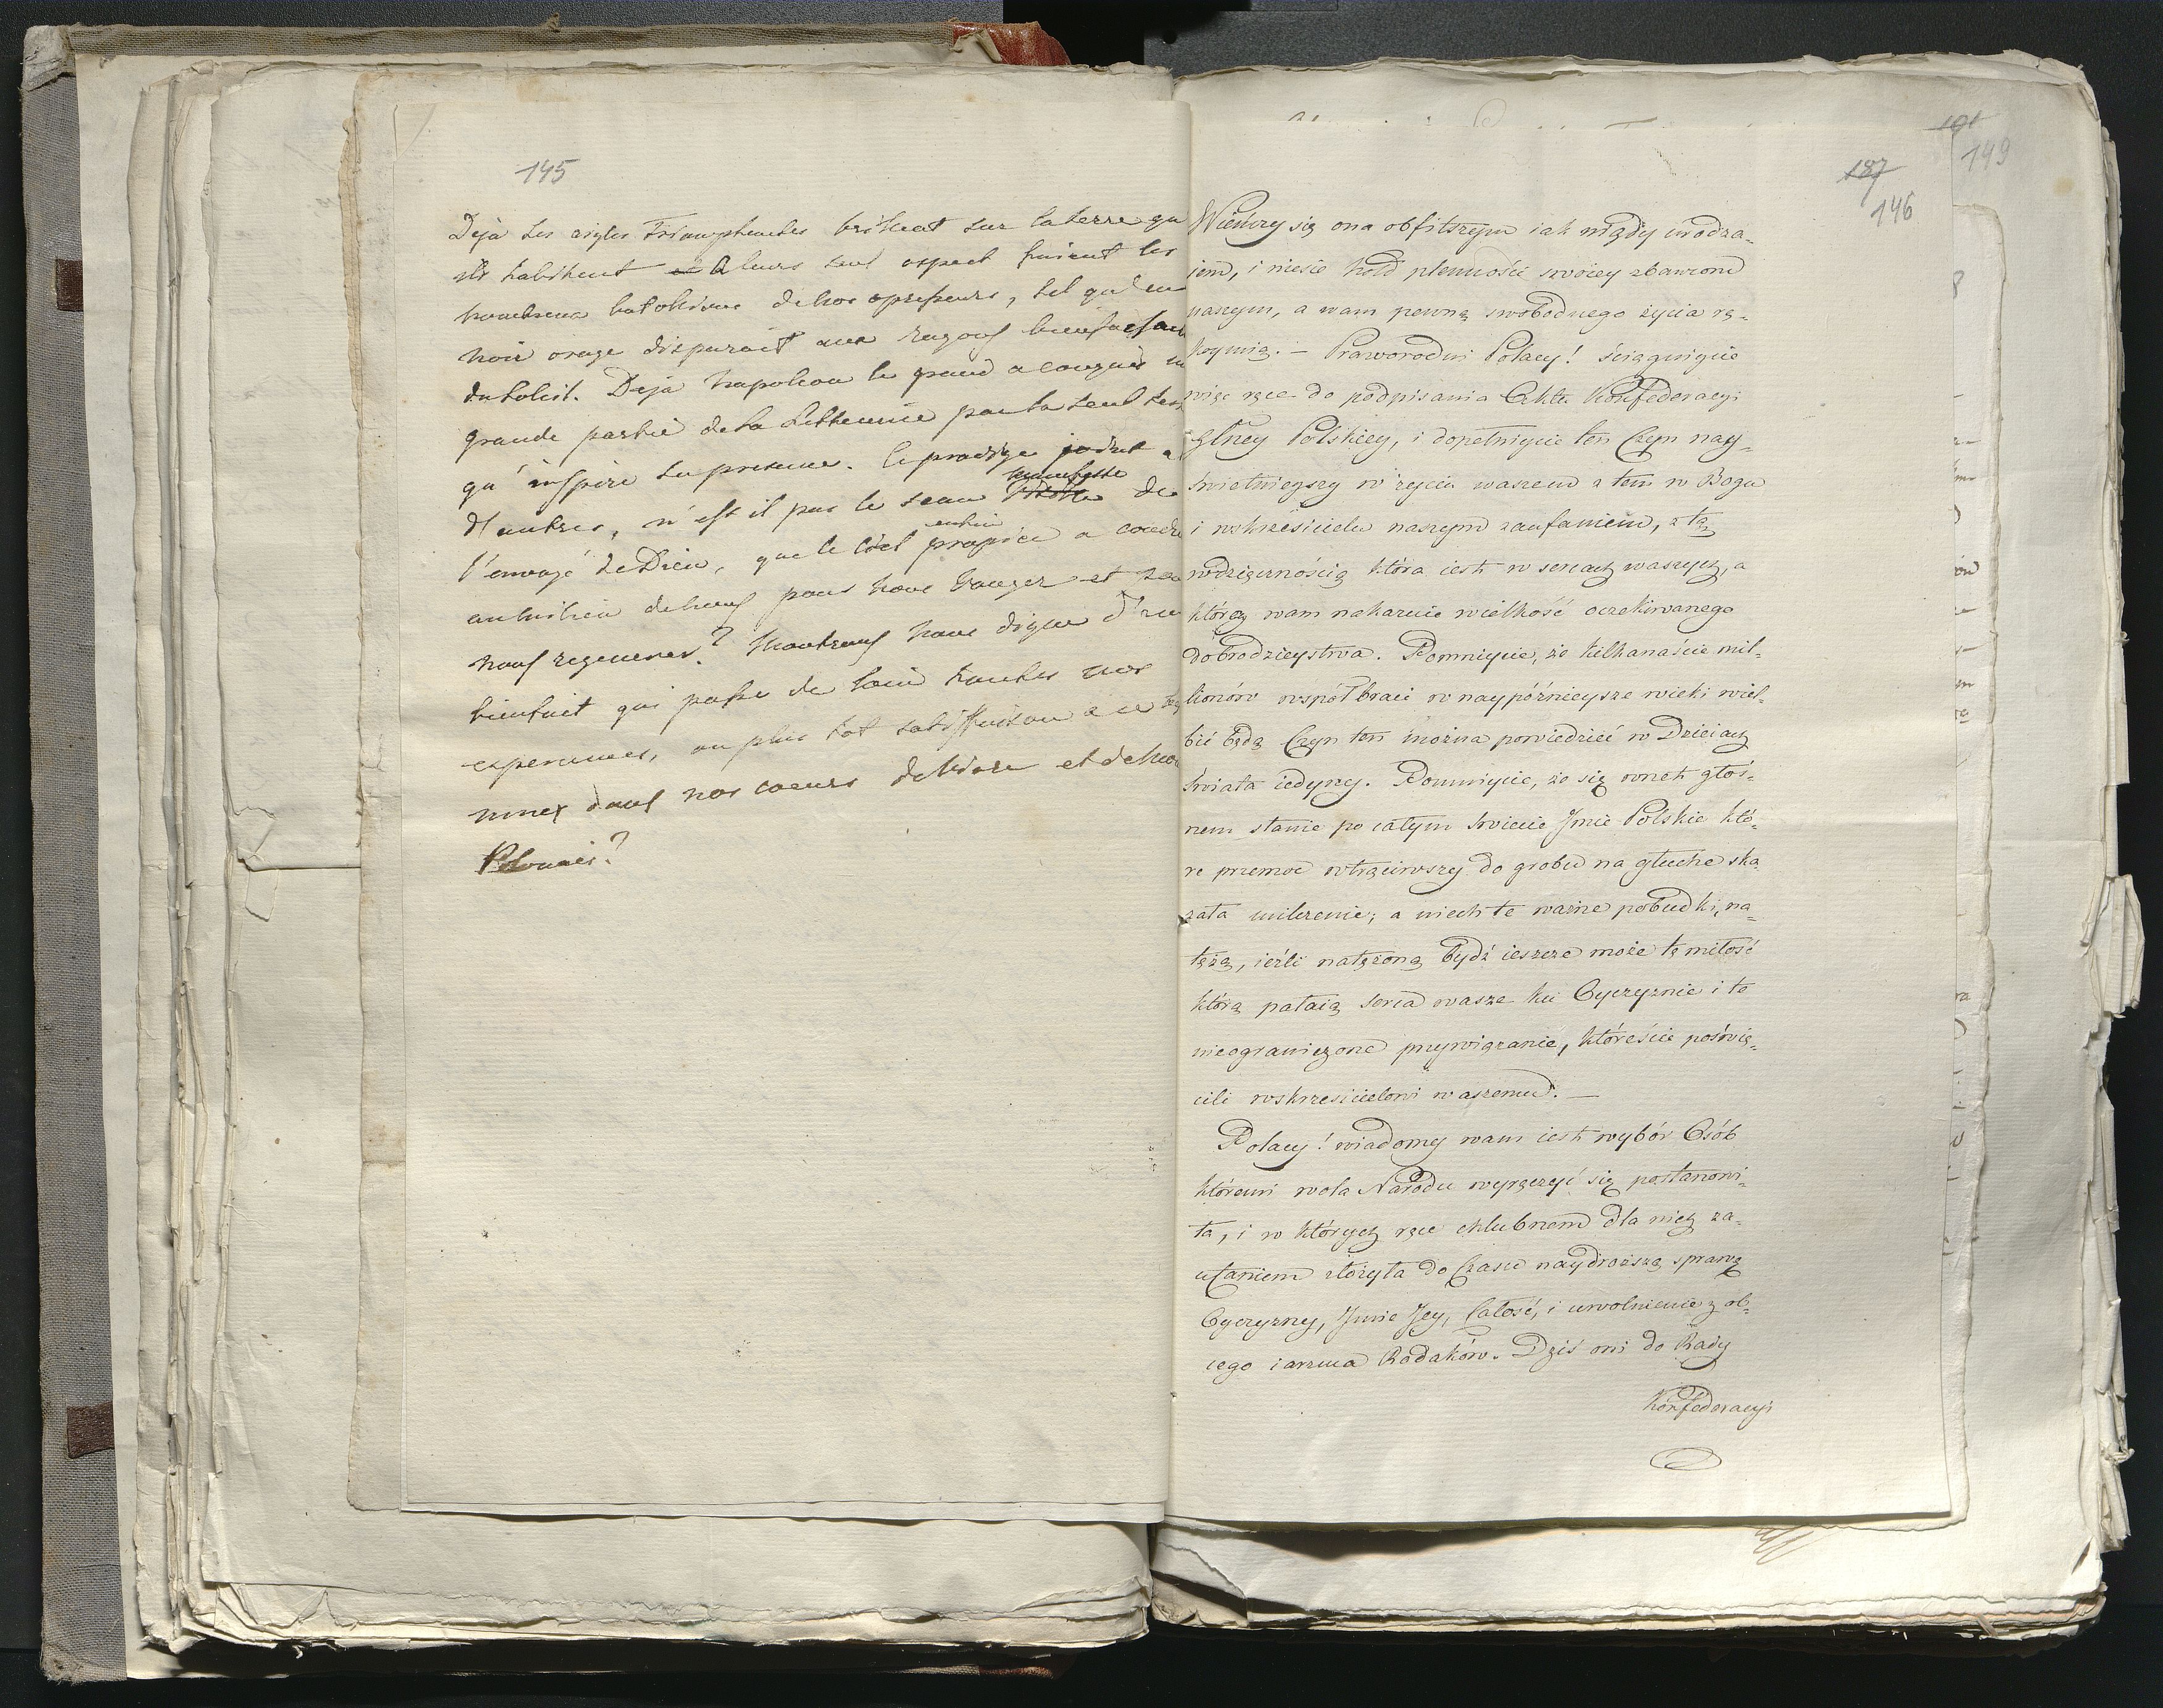 145
Deja les aigles Triumphantes brillent sur la terre qu
ils habitent a leurs seul aspect fuirent les
nombreux batoillons de nos opresseurs, tel qu'un
noir orage disparait aux rayons bienfaisan
du soleil. Deja Napoleon le grand a conquis
grande partie de la Lithuanie par la seul
qu'inspire sa presence. Ce prodige
d'autres, n'est il pas le sceau manifeste de
l'envoyé de Dieu, que le ciel enfin propice a
au milieu de nous pour nous venger et
nous regenerer? Montrons nous digne d'un
bienfait qui passe de loin toutes nos
esperances, au plus tot satisfaison a ce
dans nos coeurs de
Polonais?
101
149
187
146
Wieńczy się ona obfitszym iak nigdy urodza-
iem, i niesie hołd plenności swoiey zbawcom
naszym, a wam pewną swobodnego życia rę-
koymią. — Praworodni Polacy! ściągniycie
więc ręce do podpisania Aktu Konfederacyi
Głney Polskiey, i dopełniycie ten Czyn nay-
świetnieyszy w życiu waszem z tem w Bogu
i wskrzesicielu naszym zaufaniem, z tą
wdzięcznością która iest w sercach waszych, a
którą wam nakazuie wielkość oczekiwanego
dobrodzieystwa. Pomniycie, że kilkanaście mil-
lionów współbraci w naypóźnieysze wieki wiel-
bić będą Czyn ten można powiedzieć w Dzieiach
świata iedyny. Pomniycie, że się wnet głoś-
nem stanie po całym świecie Jmie Polskie któ-
re przemoc wtrąciwszy do grobu na głuche ska
zała milczenie; a niech te ważne pobudki, na-
tężą, ieźli natężoną bydź ieszcze może tę miłość
którą pałaią serca wasze ku Oyczyznie i to
nieograniczone przywiązanie, któreście poświę-
cili wskrzesicielowi waszemu. —
Polacy! wiadomy wam iest wybór Osób
któremi wola Narodu wyręczyć się postanowi-
ła, i w których ręce chlubnem dla nich za-
ufaniem złożyła do Czasu naydroższą sprawę
Oyczyzny, Jmie Jey, Całość, i uwolnienie z ob-
cego iarzma Rodaków. Dziś oni do Rady
Konfederacyi